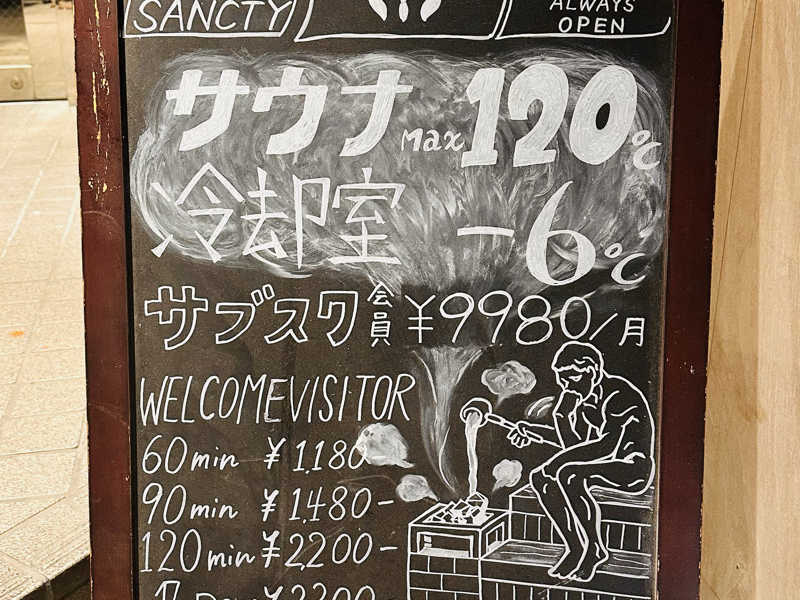 SANCTY
ALWAYS
OPEN
サウナ Max 120℃
冷却室 -6℃
サブスク会員 ¥9980/月
WELCOME VISITOR
60min ¥1,180
90min ¥1,480-
120min ¥2,200-